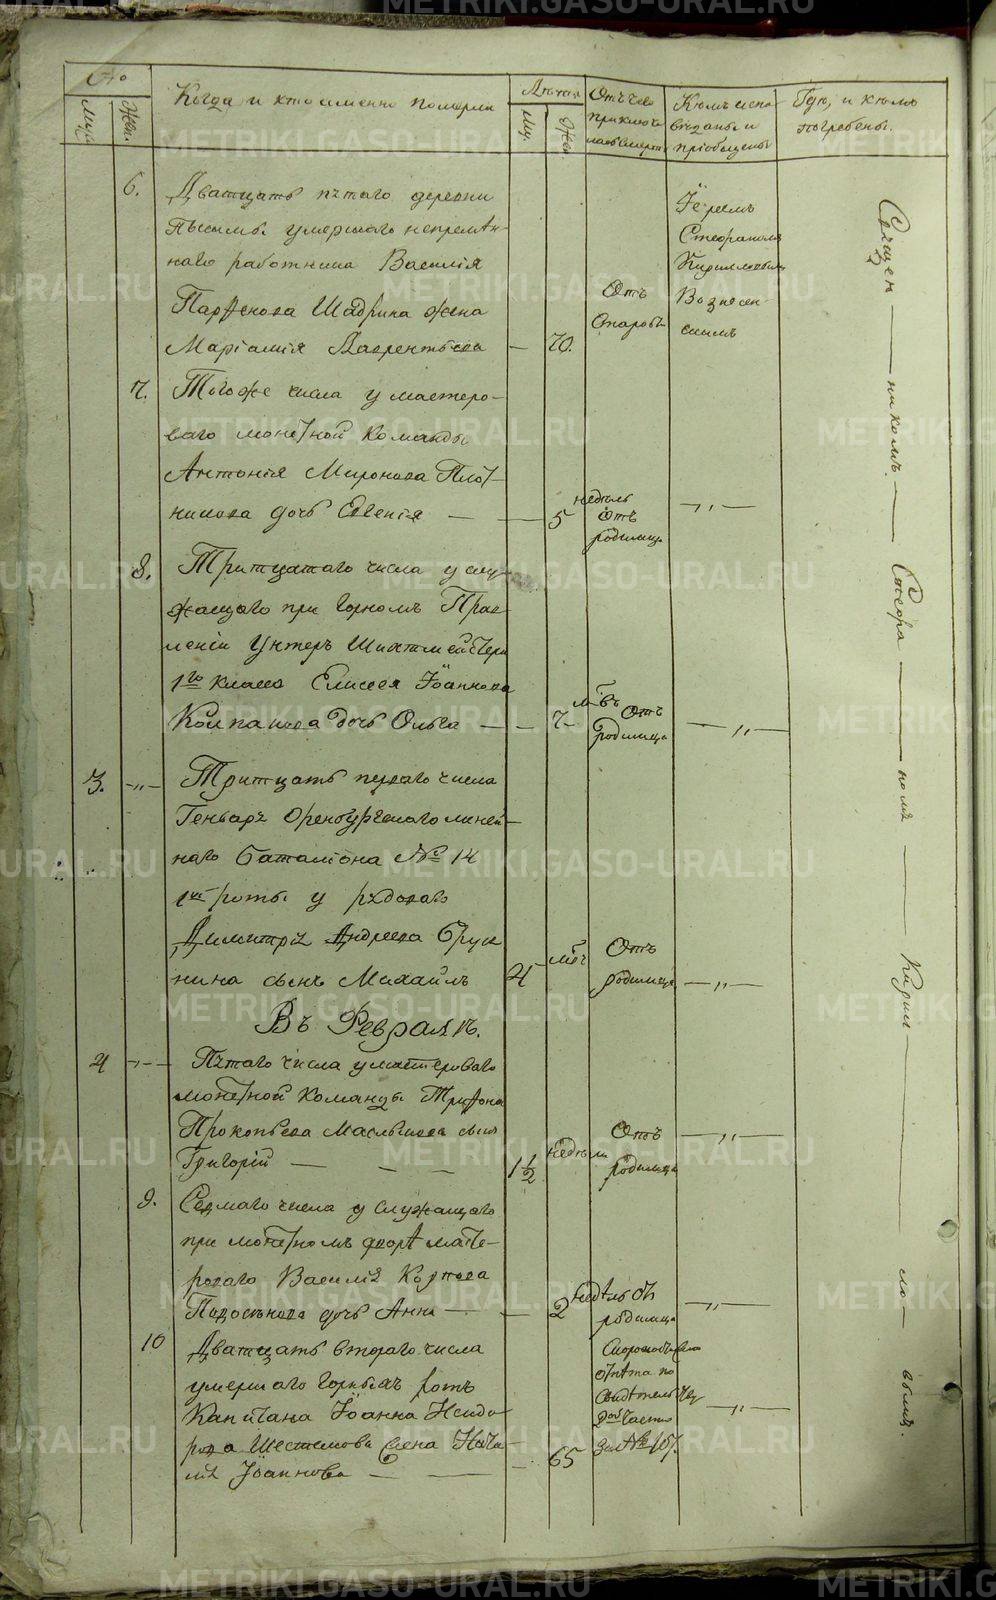 METRIKI.GASO-URAL.RU
№
Муж.
Жен.
Когда и кто именно померли
Лѣта
Му.
Жен
Отъ чего
приключи
лась смерть
Кѣмъ испо
вѣданы и
пріобщены
Гдѣ, и кѣмъ
погребены.
6.
Дватцать пятаго деревни
умершаго непремѣн-
наго работника Василія
Парфенова Шадрина жена
Маріамія Лаврентьева
—
70.
Отъ
старости
Іереемъ
Стефаномъ
Кирилловымъ
Вознесен-
скимъ
Священ — никомъ — Стефа — номъ — Кирил — ло — вымъ.
7.
Того же числа у мастеро-
ваго монетной команды
Антонія Миронова Плот-
никова дочь Евгенія —
—
5
недѣль
отъ
родимца
— „ —
8.
Тритцатаго числа у слу-
жащаго при Горномъ Прав-
леніи Унтеръ Шихтмейстера
1го класса Елисея Іоаннова
Колпакова дочь Ольга —
—
7
м-въ
Отъ
родимца
— „ —
3.
-„-
Тритцать перваго числа
Генваря Оренбургскаго линей-
наго баталіона № 14
роты у рядоваго
Димитрія Андреева
сынъ Михаилъ
4
мѣс
Отъ
родимца
— „ —
Въ Февралѣ.
4
-„-
Пятаго числа у мастероваго
монетной команды Трифона
Прокопьева Масленикова сынъ
Григорій —
1½
недѣли
Отъ
родимца
— „ —
9.
Седмаго числа у служащаго
при монетномъ дворѣ масте-
роваго Василія Карпова
Подосенова дочь Анна —
—
2
недѣль от
родимца
— „ —
10
Дватцать втораго числа
умершаго Горныхъ ротъ
Капитана Іоанна Исидо-
рова Шестакова жена Ната-
лія Іоаннова —
—
65
по
свидѣтельству
2ой части
за № 167.
— „ —